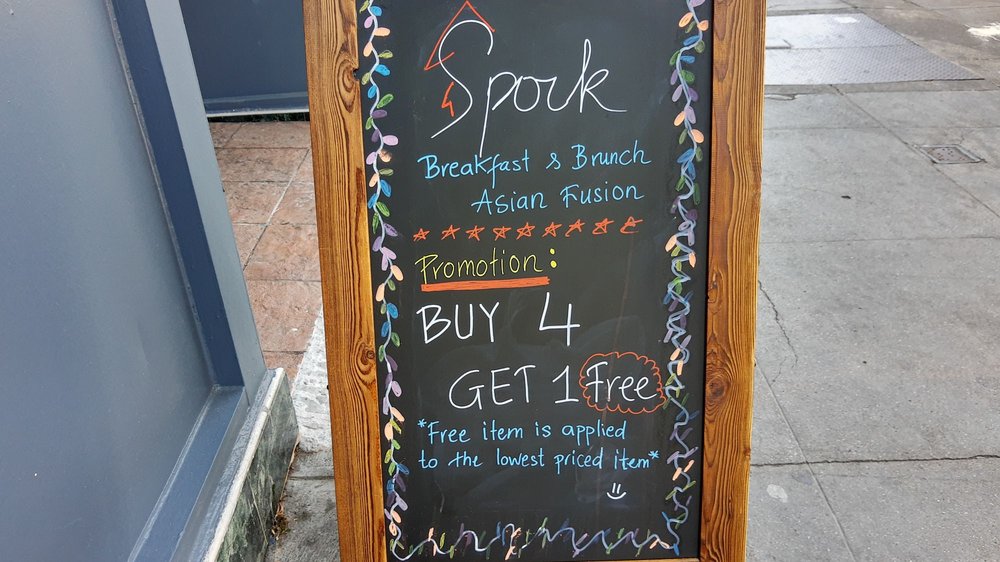 Spork
Breakfast & Brunch
Asian Fusion
Promotion:
BUY 4
GET 1 Free
*Free item is applied
to the lowest priced item*